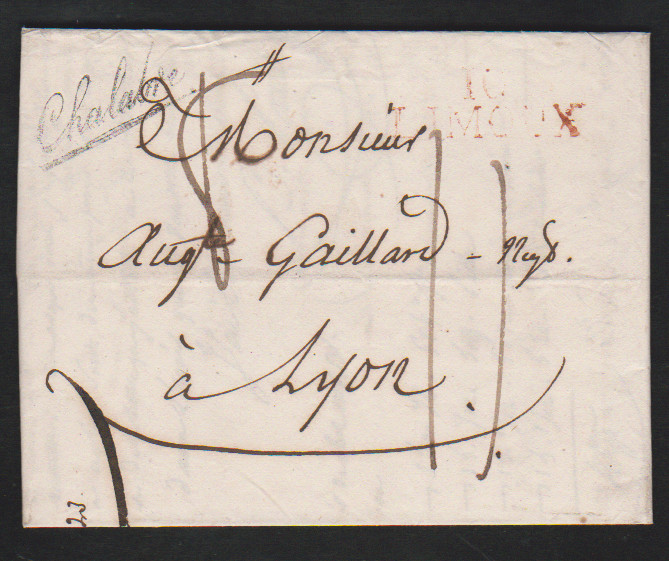 Chalabre
10
LIMOUX
Monsieur
Augte Gaillard - Negt.
à Lyon
8
11
23